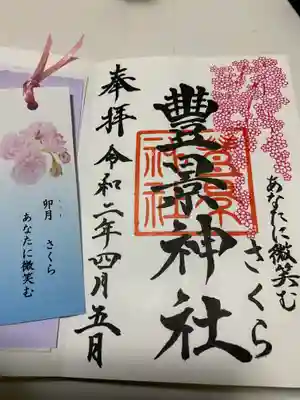 さくら
あなたに微笑む
豐景神社
奉拝 令和二年四月五月
卯月 さくら
あなたに微笑む